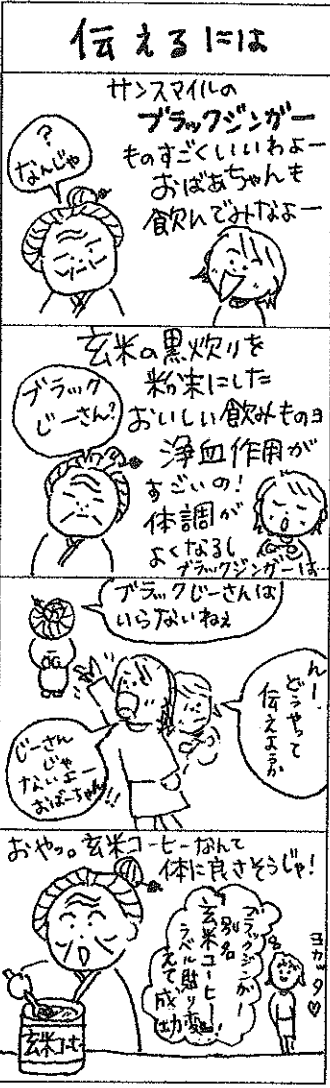 伝えるには
サンスマイルの
ブラックジンガー
ものすごくいいわよー
おばあちゃんも
飲んでみなよー
?
なんじゃ
玄米の黒炒りを
粉末にした
おいしい飲みものヨ
浄血作用が
すごいの!
体調が
よくなるし
ブラックジンガーは…
ブラック
じーさん?
ブラックじーさんは
いらないねぇ
んー、
どうやって
伝えようか
じーさん
じゃ
ないよー
おばーちゃん!!
おやっ。玄米コーヒーなんて
体に良さそうじゃ!
ブラックジンガー
別名
玄米コーヒー!
ラベル貼り変
えて成功
ヨカッタ♡
玄米コーヒー